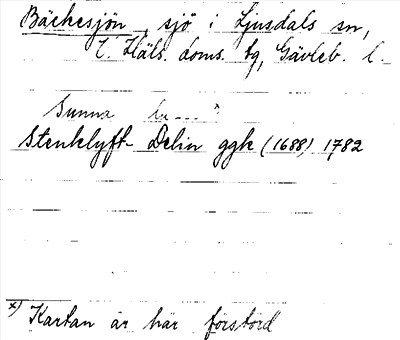 Bäckesjön, sjö i Ljusdals sn,
V. Häls. doms. tg, Gävleb. l.
Sunna ... x)
Stenklyft- Delin ggk (1688) 1782
x) Kartan är här förstörd